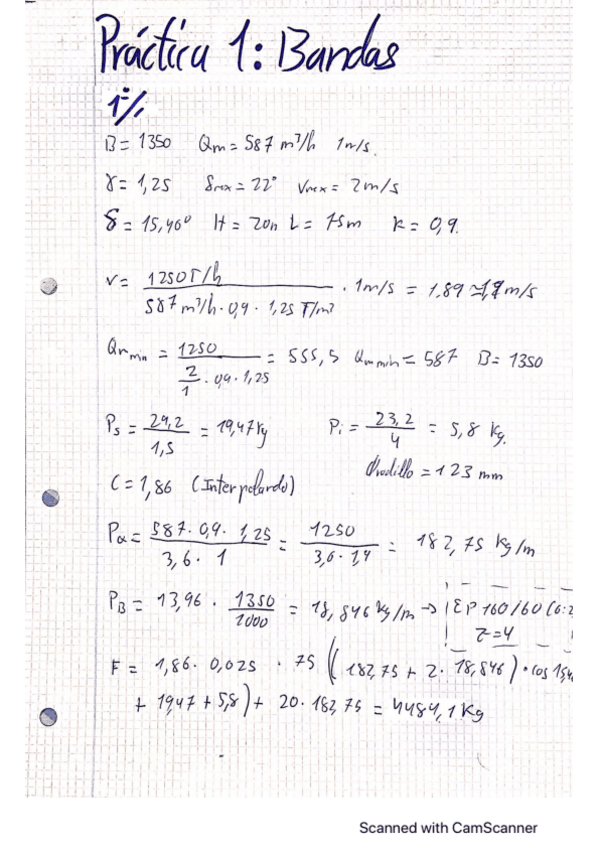 Práctica 1: Bandas
1º/.
B = 1350 Qm = 587 m³/h 1m/s.
γ = 1,25 δmax = 22° Vmax = 2m/s
δ = 15,46° H = 20m L = 75m k = 0,9.
V = 1250T/h / 587 m³/h · 0,9 · 1,25 T/m³ · 1m/s = 1,89 ≈ 1,9 m/s
Qm min = 1250 / 2/1 · 0,9 · 1,25 = 555,5 Qm min = 587 B = 1350
Ps = 29,2 / 1,5 = 19,47 kg Pi = 23,2 / 4 = 5,8 kg.
Ørodillo = 123 mm
C = 1,86 (Interpolando)
Pα = 587 · 0,9 · 1,25 / 3,6 · 1 = 1250 / 3,6 · 1,9 = 182,75 kg/m
PB = 13,96 · 1350 / 1000 = 18,846 kg/m → EP 160/60 (6:2
z = 4
F = 1,86 · 0,025 · 75 ((182,75 + 2 · 18,846) · cos 15,4
+ 19,47 + 5,8) + 20 · 182,75 = 4484,1 kg
Scanned with CamScanner